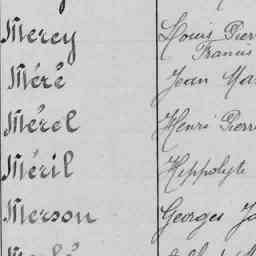 Mercy Louis Pierr
Francis
Méré Jean Ma
Mérel Henri Pierr
Méril Hippolyte
Merson Georges J